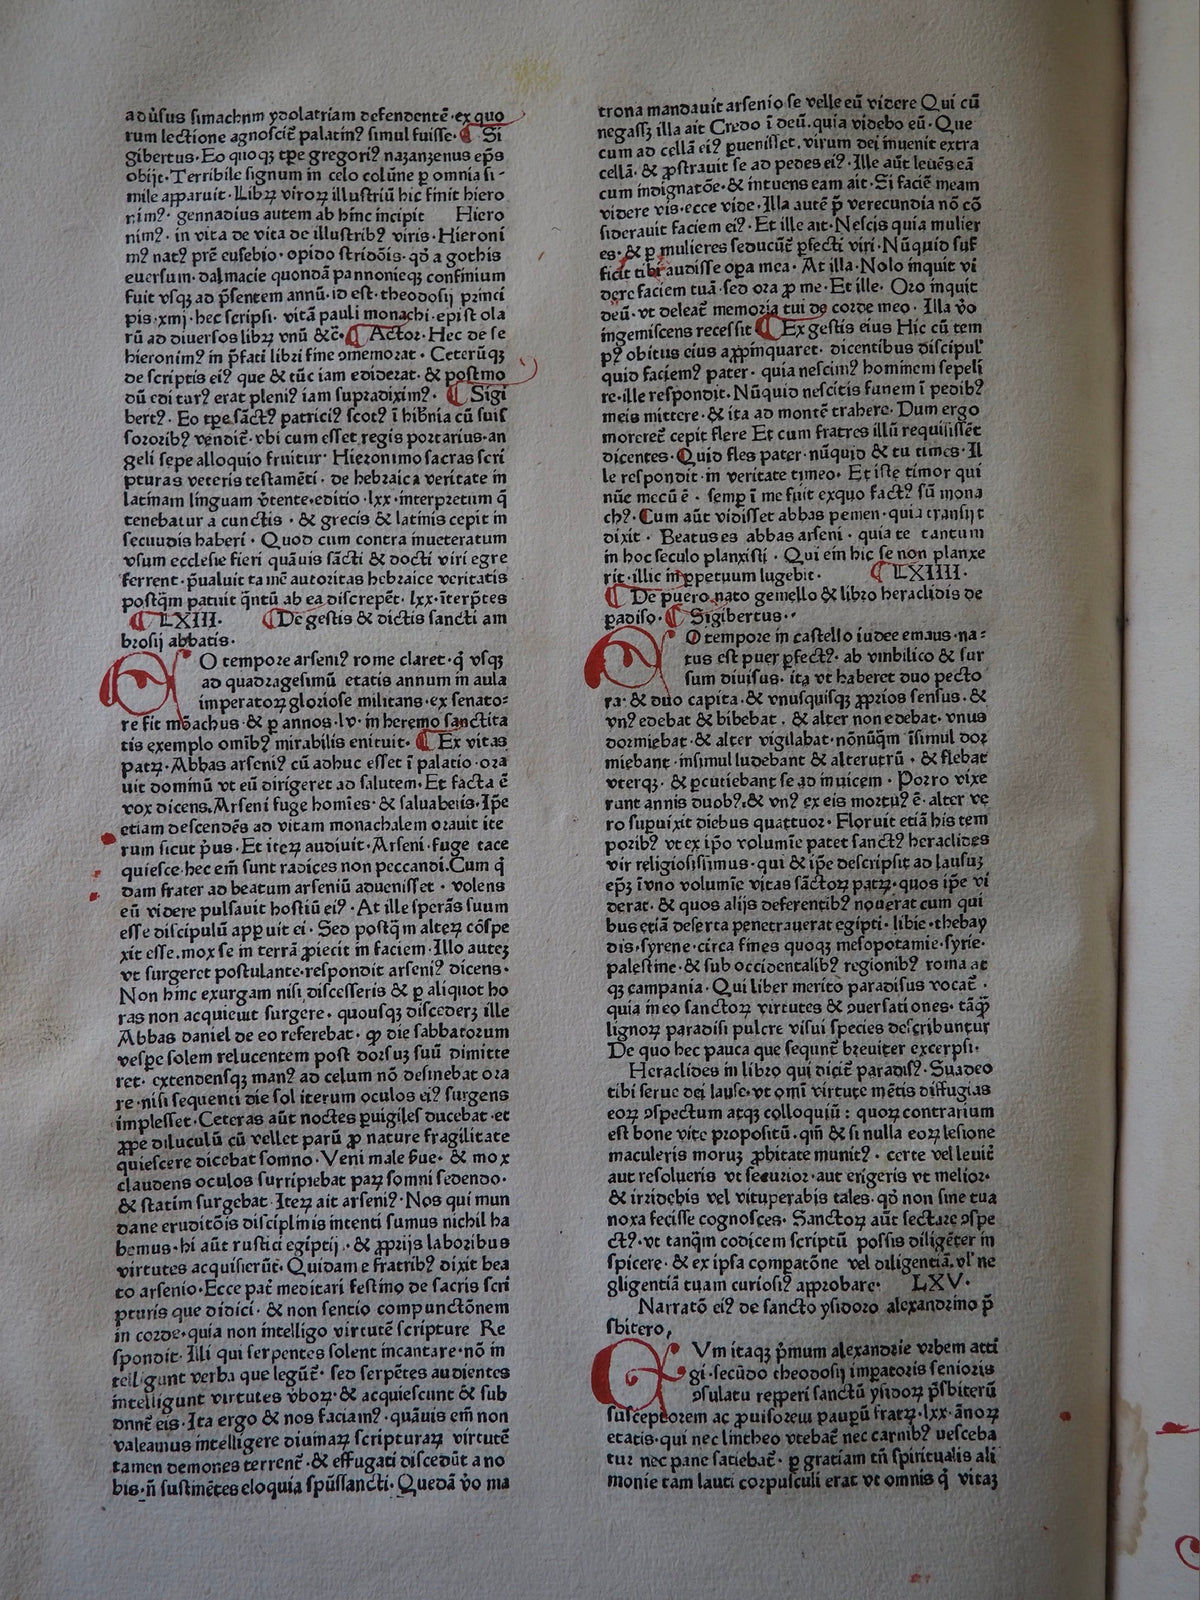 adůsus simachnm ydolatriam defendentē·ex quo
rum lectione agnoscit̃ palatin⁹ simul fuisse· ¶ Si
gibertus·Eo quoqꝫ tp̄e gregori⁹ nazanzenus ep̄s
obijt·Terribile signum in celo colūne ꝑ omnia si-
mile apparuit·Libꝝ viroꝝ illustriū hic finit hiero
nim⁹· gennadius autem ab hinc incipit Hiero
nim⁹· in vita de vita de illustrib⁹ viris·Hieroni
m⁹ nat⁹ prē eusebio·opido stridōis·qđ a gothis
euersum·dalmacie quondā pannonieqꝫ confinium
fuit vsqꝫ ad p̄sentem annū·id est·theodosij princi
pis·xmj·hec scripsi· vitā pauli monachi·epistola
rū ad diuersos libꝝ vnū &c̄· ¶ Actor·Hec de se
hieronim⁹ in p̄fati libri fine ɔmemorat·Ceterūqꝫ
de scriptis ei⁹ que & tūc iam ediderat·& postmo
dū edi tur⁹ erat pleni⁹ iam supradixim⁹· ¶ Sigi
bert⁹· Eo tp̄e sāct⁹ patrici⁹ scot⁹ ī hib̄nia cū suis
sororib⁹ vendit̃·vbi cum esset regis portarius·an
geli sepe alloquio fruitur· Hieronimo sacras scri
pturas veteris testamēti· de hebraica veritate in
latinam linguam v̄tente·editio·lxx·interpretum q̄
tenebatur a cunctis·& grecis & latinis cepit in
secuudis haberi·Quod cum contra inueteratum
vsum ecclesie fieri quāuis sācti & docti viri egre
ferrent·p̄ualuit tamē autoritas hebraice veritatis
postq̄m patuit q̄ntū ab ea discrepēt·lxx·īterp̄tes
¶ LXIII· ¶ De gestis & dictis sancti am
brosij abbatis·
O tempore arseni⁹ rome claret·q̄ vsqꝫ
ad quadragesimū etatis annum in aula
imperatoꝝ gloriose militans·ex senato=
re fit mōachus·& ꝑ annos·lv·in heremo sanctita
tis exemplo omīb⁹ mirabilis enituit· ¶ Ex vitas
patꝝ·Abbas arseni⁹ cū adhuc esset ī palatio·ora
uit dominū vt eū dirigeret ad salutem·Et facta ē
vox dicens·Arseni fuge homīes·& saluaberis·Ip̄e
etiam descendēs ad vitam monachalem orauit ite
rum sicut p̓us·Et iteꝝ audiuit·Arseni·fuge tace
quiesce·hec em̄ sunt radices non peccandi·Cum q̄
dam frater ad beatum arseniū aduenisset·volens
eū videre pulsauit hostiū ei⁹·At ille sperās suum
esse discipulū apꝑuit ei·Sed postq̄m alteꝝ cōspe
xit esse·mox se in terrā ꝓiecit in faciem·Illo auteꝫ
vt surgeret postulante·respondit arseni⁹ dicens·
Non hinc exurgam nisi discesseris & ꝑ aliquot ho
ras non acquieuit surgere·quousqꝫ discederꝫ ille
Abbas daniel de eo referebat·ꝙ die sabbatorum
vesꝑe solem relucentem post dorsuꝫ suū dimitte
ret·extendensqꝫ man⁹ ad celum nō desinebat ora
re·nisi sequenti die sol iterum oculos ei⁹ surgens
implesset·Ceteras aūt noctes ꝑuigiles ducebat·et
ꝓpe diluculū cū vellet parū ꝓ nature fragilitate
quiescere dicebat somno·Veni male s̄ue·& mox
claudens oculos surripiebat paꝝ somni sedendo·
& statim surgebat Iteꝝ ait arseni⁹·Nos qui mun
dane eruditōis disciplinis intenti sumus nichil ha
bemus·hi aūt rustici egiptij·& ꝓprijs laboribus
virtutes acquisierūt·Quidam e fratrib⁹ dixit bea
to arsenio·Ecce pat̃ meditari festino de sacris scri
pturis que didici·& non sentio compunctōnem
in corde·quia non intelligo virtutē scripture Re
spondit·Illi qui serpentes solent incantare·nō in
telligunt verba que legūt̃·sed serpētes audientes
intelligunt virtutes v̄boꝝ·& acquiescunt & sub
dnnt̃ eis·Ita ergo & nos faciam⁹·quāuis em̄ non
valeamus intelligere diuinaꝝ scripturaꝝ virtutē
tamen demones terrent̃·& effugati discedūt a no
bis·n̄ sustinētes eloquia spūssancti·Quedā v̊o ma
trona mandauit arsenio se velle eū videre Qui cū
negassꝫ illa ait Credo ī deū·quia videbo eū·Que
cum ad cellā ei⁹ ꝑuenisset·virum dei inuenit extra
cellā·& ꝓstrauit se ad pedes ei⁹·Ille aūt leuēs eā
cum indignatōe·& intuens eam ait·Si faciē meam
videre vis·ecce vide·Illa autē p̄ verecundia nō cō
siderauit faciem ei⁹·Et ille ait·Nescis quia mulier
es·& ꝑ mulieres seducūt̃ ꝑfecti viri·Nūquid suf
ficit tibi audisse oꝑa mea·At illa·Nolo inquit vi
dere faciem tuā·sed ora ꝓ me·Et ille·Oro inquit
deū·vt deleat̃ memoria tui de corde meo·Illa v̊o
ingemiscens recessit ¶ Ex gestis eius Hic cū tem
p⁹ obitus eius apꝓpinquaret·dicentibus discipul̓
quid faciem⁹ pater·quia nescim⁹ hominem sepeli
re·ille respondit·Nūquid nescitis funem ī pedib⁹
meis mittere·& ita ad montē trahere·Dum ergo
moreret̃ cepit flere Et cum fratres illū requisissēt
dicentes·Quid fles pater·nūquid & tu times·Il
le respondit·in veritate timeo·Et iste timor qui
nūc mecū ē·semꝑ ī me fuit exquo fact⁹ sū mona
ch⁹·Cum aūt vidisset abbas pemen·quia transijt
dixit·Beatus es abbas arseni·quia te tantum
in hoc seculo planxisti·Qui em̄ hic se non planxe
rit·illic in ꝑpetuum lugebit· ¶ LXIIII·
¶ De puero nato gemello & libro heraclidis de
ꝑadiso· ¶ Sigibertus··
O tempore in castello iudee emaus·na=
tus est puer ꝑfect⁹·ab vmbilico & sur
sum diuisus·ita vt haberet duo pecto
ra·& duo capita·& vnusquisqꝫ ꝓprios sensus·&
vn⁹ edebat & bibebat·& alter non edebat·vnus
dormiebat·& alter vigilabat·nōnūq̄m īsimul dor
miebant·insimul ludebant & alterutrū·& flebat
vterqꝫ·& ꝑcutiebant se ad inuicem·Porro vixe
rant annis duob⁹·& vn⁹ ex eis mortu⁹ ē·alter ve
ro suꝑuixit diebus quattuor·Floruit etiā his tem
porib⁹ vt ex ip̄o volumīe patet sanct⁹ heraclides
vir religiosissimus·qui & ip̄e descripsit ad lausuꝫ
ep̄ꝫ ī vno volumīe vitas sāctoꝝ patꝝ·quos ip̄e vi
derat·& quos alijs deferentib⁹ nouerat cum qui
bus etiā deserta penetrauerat egipti·libie·thebay
dis·syrene·circa fines quoqꝫ mesopotamie·syrie·
palestine·& sub occidentalib⁹ regionib⁹ roma at
qꝫ campania·Qui liber merito paradisus vocat̃·
quia in eo sanctoꝝ virtutes & ɔuersationes·tāq̄ꝫ
lignoꝝ paradisi pulcre visui species describuntur
De quo hec pauca que sequnt̃ breuiter excerpsi·
Heraclides in libro qui dicit̃ paradis⁹·Suadeo
tibi serue dei lause·vt omī virtute mētis diffugias
eoꝝ ɔspectum atqꝫ colloquiū: quoꝝ contrarium
est bone vite propositū·qm̄ & si nulla eoꝝ lesione
maculeris moruꝫ ꝓbitate munit⁹·certe vel leuit̃
aut resolueris vt securior·aut erigeris vt melior·
& irridebis vel vituperabis tales·qđ non sine tua
noxa fecisse cognosces·Sanctoꝝ aūt sectare ɔspe
ct⁹·vt tanq̄m codicem scriptū possis diligēter in
spicere·& ex ipsa compatōne vel diligentiā·vl̓ ne
gligentiā tuam curiosi⁹ approbare· LXV·
Narratō ei⁹ de sancto ysidoro alexandrino p̄
sbitero,
Vm itaqꝫ p̓mum alexandrie vrbem atti
gi·secūdo theodosij imꝑatoris senioris
ɔsulatu repperi sanctū ysidoꝝ p̄sbiterū
susceptorem ac ꝓuisorem pauꝑū fratꝝ·lxx·ānoꝝ
etatis·qui nec lintheo vtebat̃ nec carnib⁹ uesceba
tur nec pane satiebat̃·ꝑ gratiam tn̄ spiritualis ali
monie tam lauti corpusculi erat vt omnis q̄ vitaꝫ